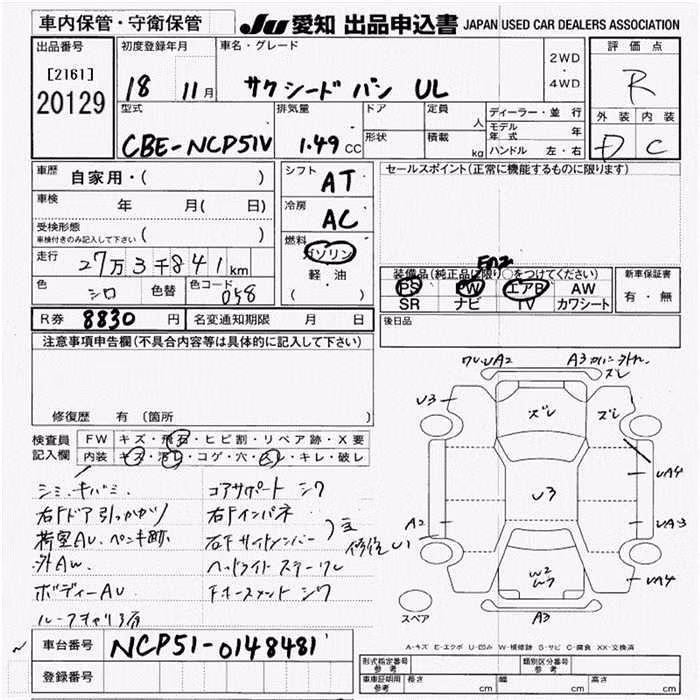 車内保管・守衛保管
JU 愛知 出品申込書 JAPAN USED CAR DEALERS ASSOCIATION
出品番号
[2161]
20129
初度登録年月
18 11月
車名・グレード
サクシード バン UL
2WD
・
4WD
評価点
R
外装 内装
D C
型式
CBE-NCP51V
排気量
1.49 CC
ドア
形状
定員
人
積載
kg
ディーラー・並行
モデル年式 年
ハンドル 左・右
車歴
自家用・( )
車検
年 月( 日)
受検形態
車検付きのみ記入して下さい ( )
走行
27万3千841km
色
シロ
色替
色コード
058
シフト
AT
冷房
AC
燃料
ガソリン
軽・油
( )
セールスポイント(正常に機能するものに限ります)
装備品(純正品に限り○をつけてください)
PS PW エアB AW
SR ナビ TV カワシート
新車保証書
有・無
R券 8830 円
名変通知期限 月 日
後日品
注意事項申告欄(不具合内容等は具体的に記入して下さい)
修復歴 有〔箇所 〕
検査員
記入欄
FW キズ・飛石・ヒビ割・リペア跡・X要
内装 キズ・汚レ・コゲ・穴・スレ・キレ・破レ
シミ・キバミ
右Fドア引っかかり
荷室AU、ペンキ跡
外AW
ボディーAU
コアサポート シワ
右Fインパネ
右Fサイドメンバー
ヘッドライト ステー
シワ
修復
A2
A3 ズレ
U3
ズレ
ズレ
UA4
U3
A2
UA3
U1
W2
UA4
A3
スペア
A-キズ E-エクボ U-凹み W-補修跡 S-サビ C-腐食 XX-交換済
車台番号 NCP51-0148481
登録番号
形式指定番号
参考
類別区分番号
参考
車庫証明用
参考
長さ cm 幅 cm 高さ cm